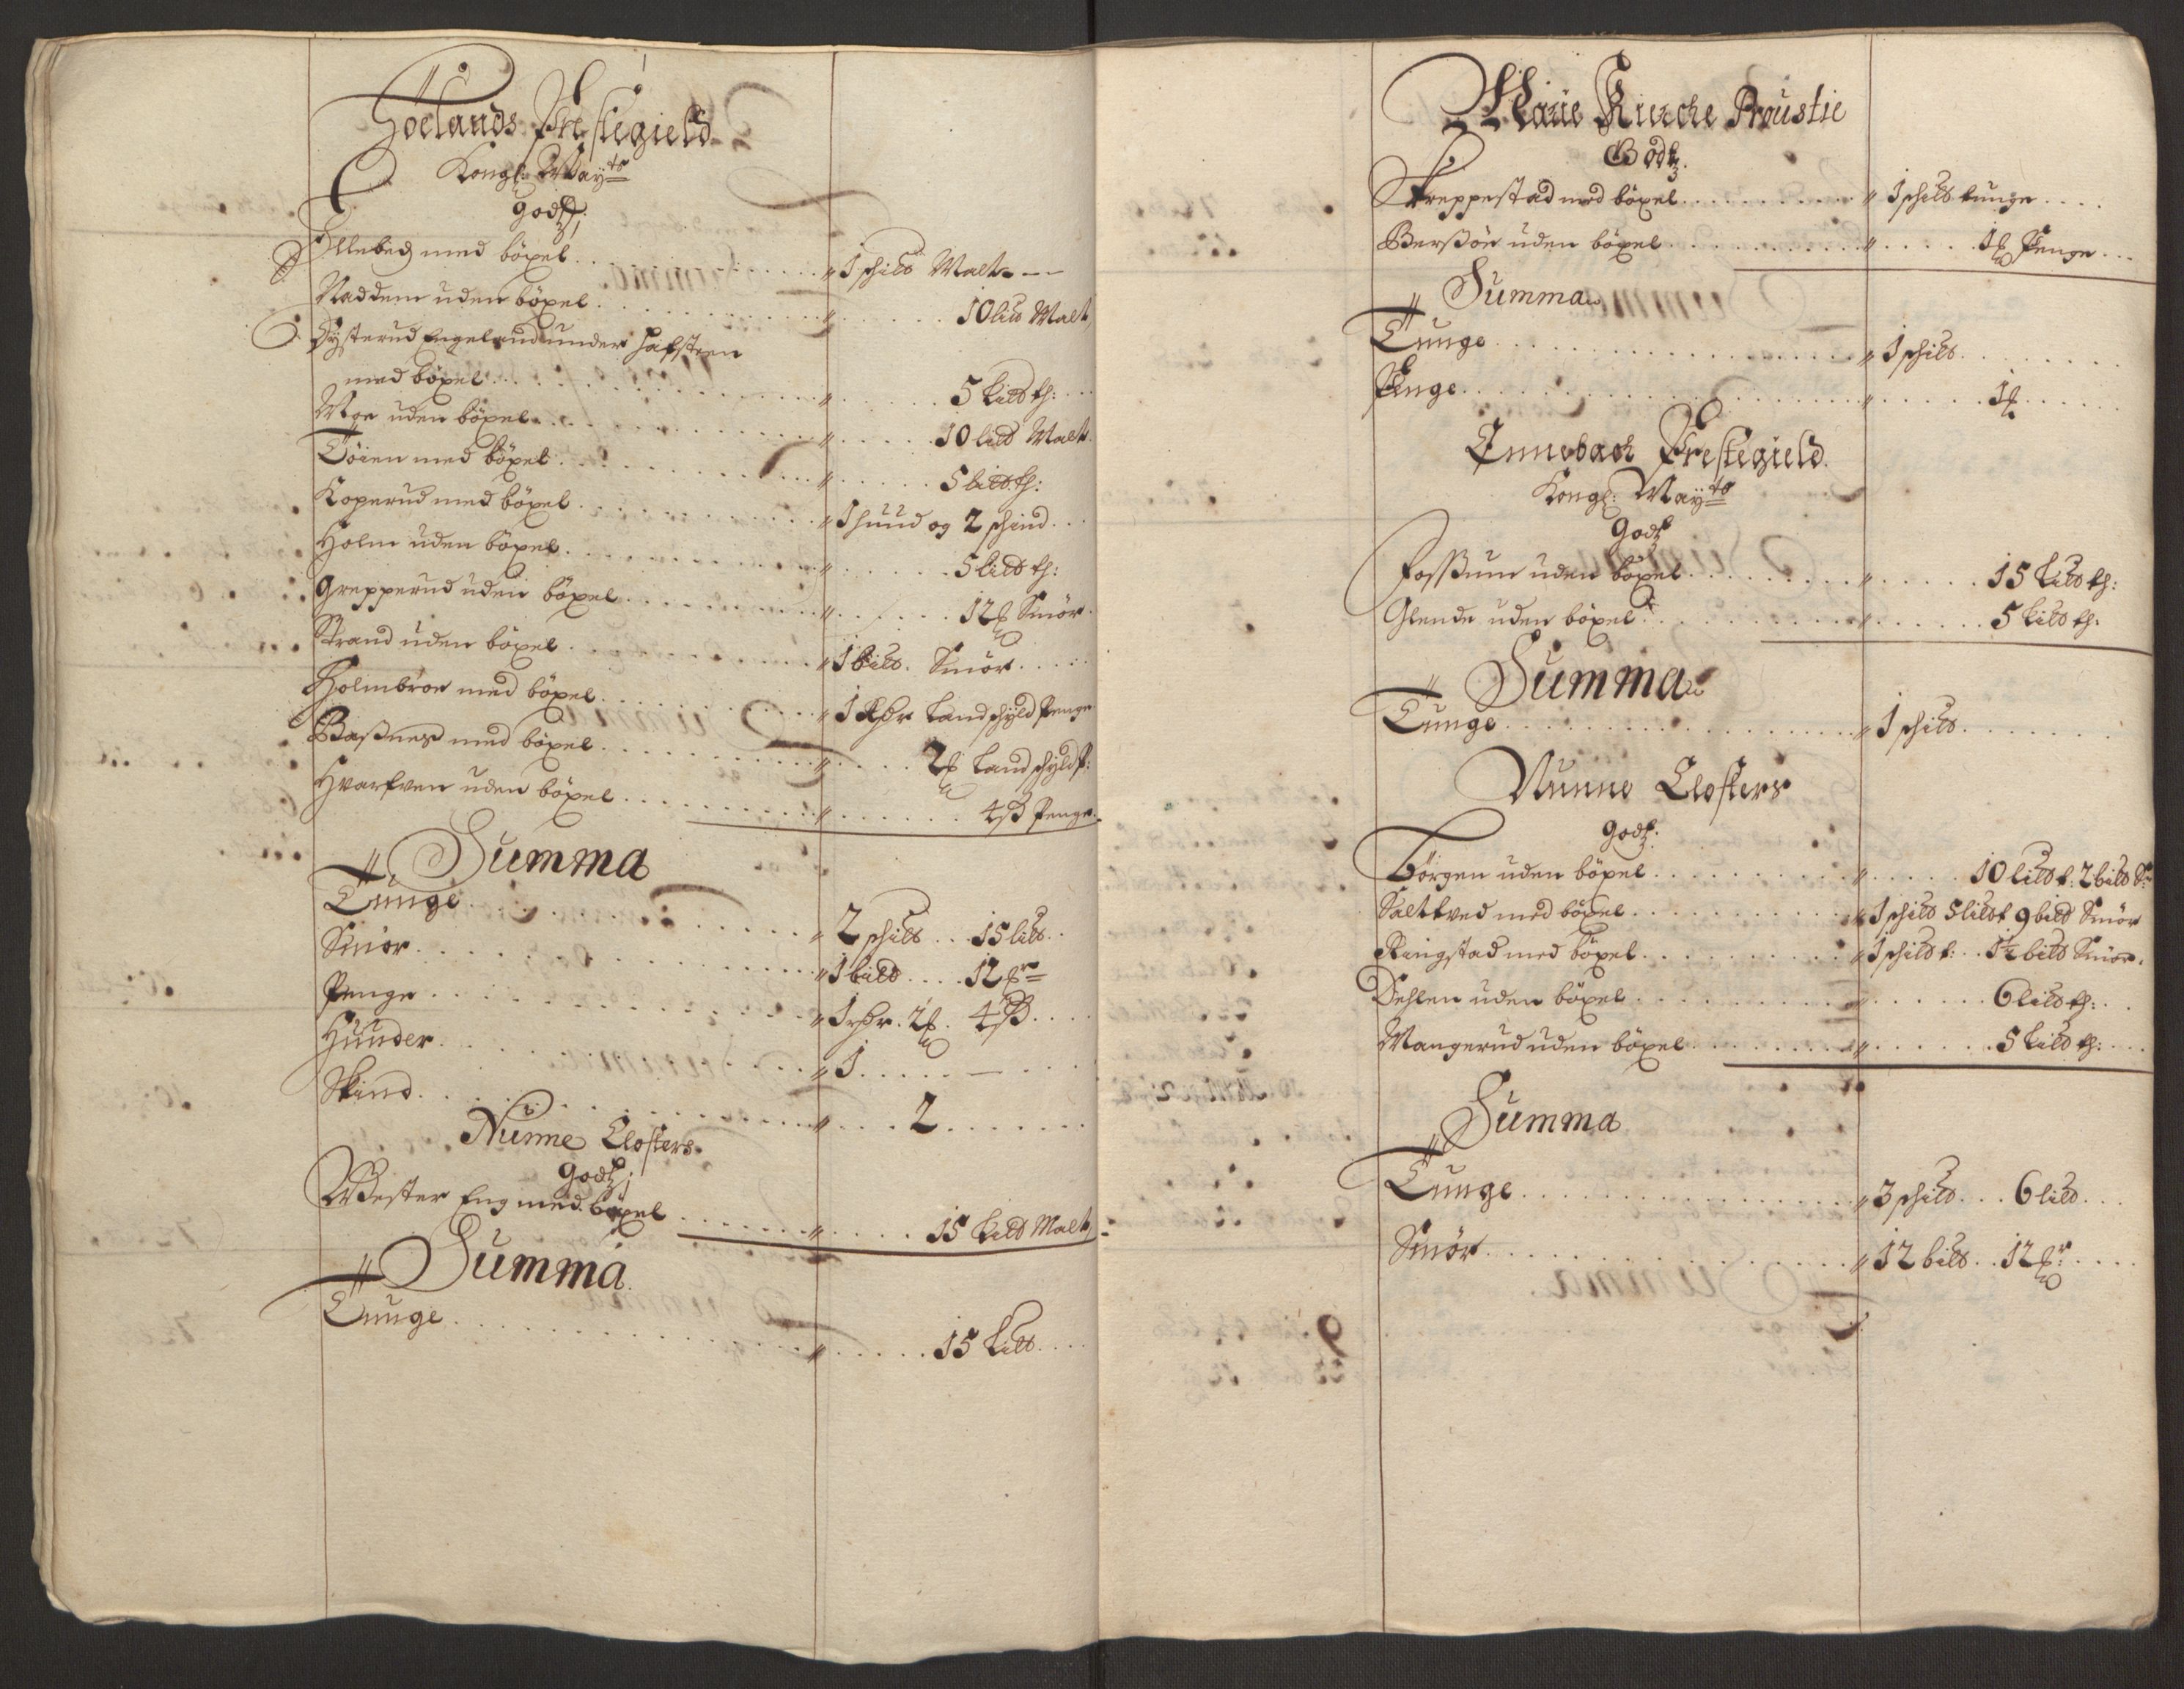 Höelands Prestegield
Kongl: Mayts
Godtz;
Ollebech med böxel . . . . " 1 schild Malt
Naddem uden böxel . . . . " . . . . 10 lild Malt
Dysterud Engeland under Hafsteen
med böxel . . . . " . . . . 5 Lild th:
Moe uden böxel . . . . " . . . . 10 lild Malt
Töien med böxel . . . . " . . . . 5 lild th:
Koperud med böxel . . . . " 1 huud og 2 schind . . .
Holm uden böxel . . . . " . . . . 5 lild th:
Grepperud uden böxel . . . . " . . . . 12 ℔ Smör
Strand uden böxel . . . . " 1 bild. Smör . . . .
Holmbroe med böxel . . . . " 1 Rdr Landschyld Penge
Baßnes med böxel . . . . " . . . . 2 ℔ Landschyld P:
Hvarfven uden böxel . . . . " . . . . 4 ß Penge
Summa
Tunge . . . . " 2 schild . . . 15 lild . .
Smör . . . . " 1 bild . . . . 12 ℔r
Penge . . . . " 1 rdr. 2 ℔. 4 ß . . . .
Huuder . . . . " 1 . . . .
Skind . . . . " . . . 2 . . . .
Nunne Closters
Godtz;
Wester Eng med böxel . . . . " . . . . 15 Lild Malt
Summa
Tunge . . . . " . . . . 15 Lild . . . .
Marie Kirche Proustie
Godtz.
Skreppestad med böxel . . . . " 1 schild tunge . . . .
Berßöe uden böxel . . . . " . . . . 1 ℔ Penge . . .
Summa
Tunge . . . . " 1 schild . . . .
Penge . . . . " . . . . 1 ℔ . . . .
Ennebach Prestegield.
Kongl: Mayts
Godtz
Foßum uden böxel . . . . " . . . . 15 Lild th:
Glende uden böxel . . . . " . . . . 5 Lild th.
Summa
Tunge . . . . " 1 schild . . . .
Nunne Closters
Godtz:
Börgen uden böxel . . . . " . . . . 10 lild t. 2 bild Sr
Saltved med böxel . . . . " 1 schild 5 lild t 9 bild Smör
Ringstad med böxel . . . . " 1 schild t: . . 1½ bild Smör.
Dehlen uden böxel . . . . " . . . . 6 lild th: . .
Mangerud uden böxel . . . . " . . . . 5 Lild th: . . .
Summa
Tunge . . . . " 3 schild . . . 6 lild . . .
Smör . . . . " 12 bild . . 12 ℔r: . . . .